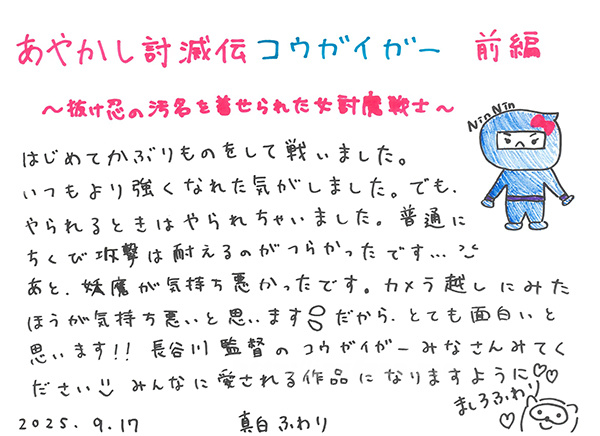 あやかし討滅伝コウガイガー 前編
～抜け忍の汚名を着せられた女討魔戦士～
NinNin
はじめてかぶりものをして戦いました。
いつもより強くなれた気がしました。でも、
やられるときはやられちゃいました。普通に
ちくび攻撃は耐えるのがつらかったです…
あと、妖魔が気持ち悪かったです。カメラ越しにみた
ほうが気持ち悪いと思います!だから、とても面白いと
思います!! 長谷川監督のコウガイガーみなさんみてく
ださい みんなに愛される作品になりますように
ましろふわり
2025. 9.17 真白ふわり